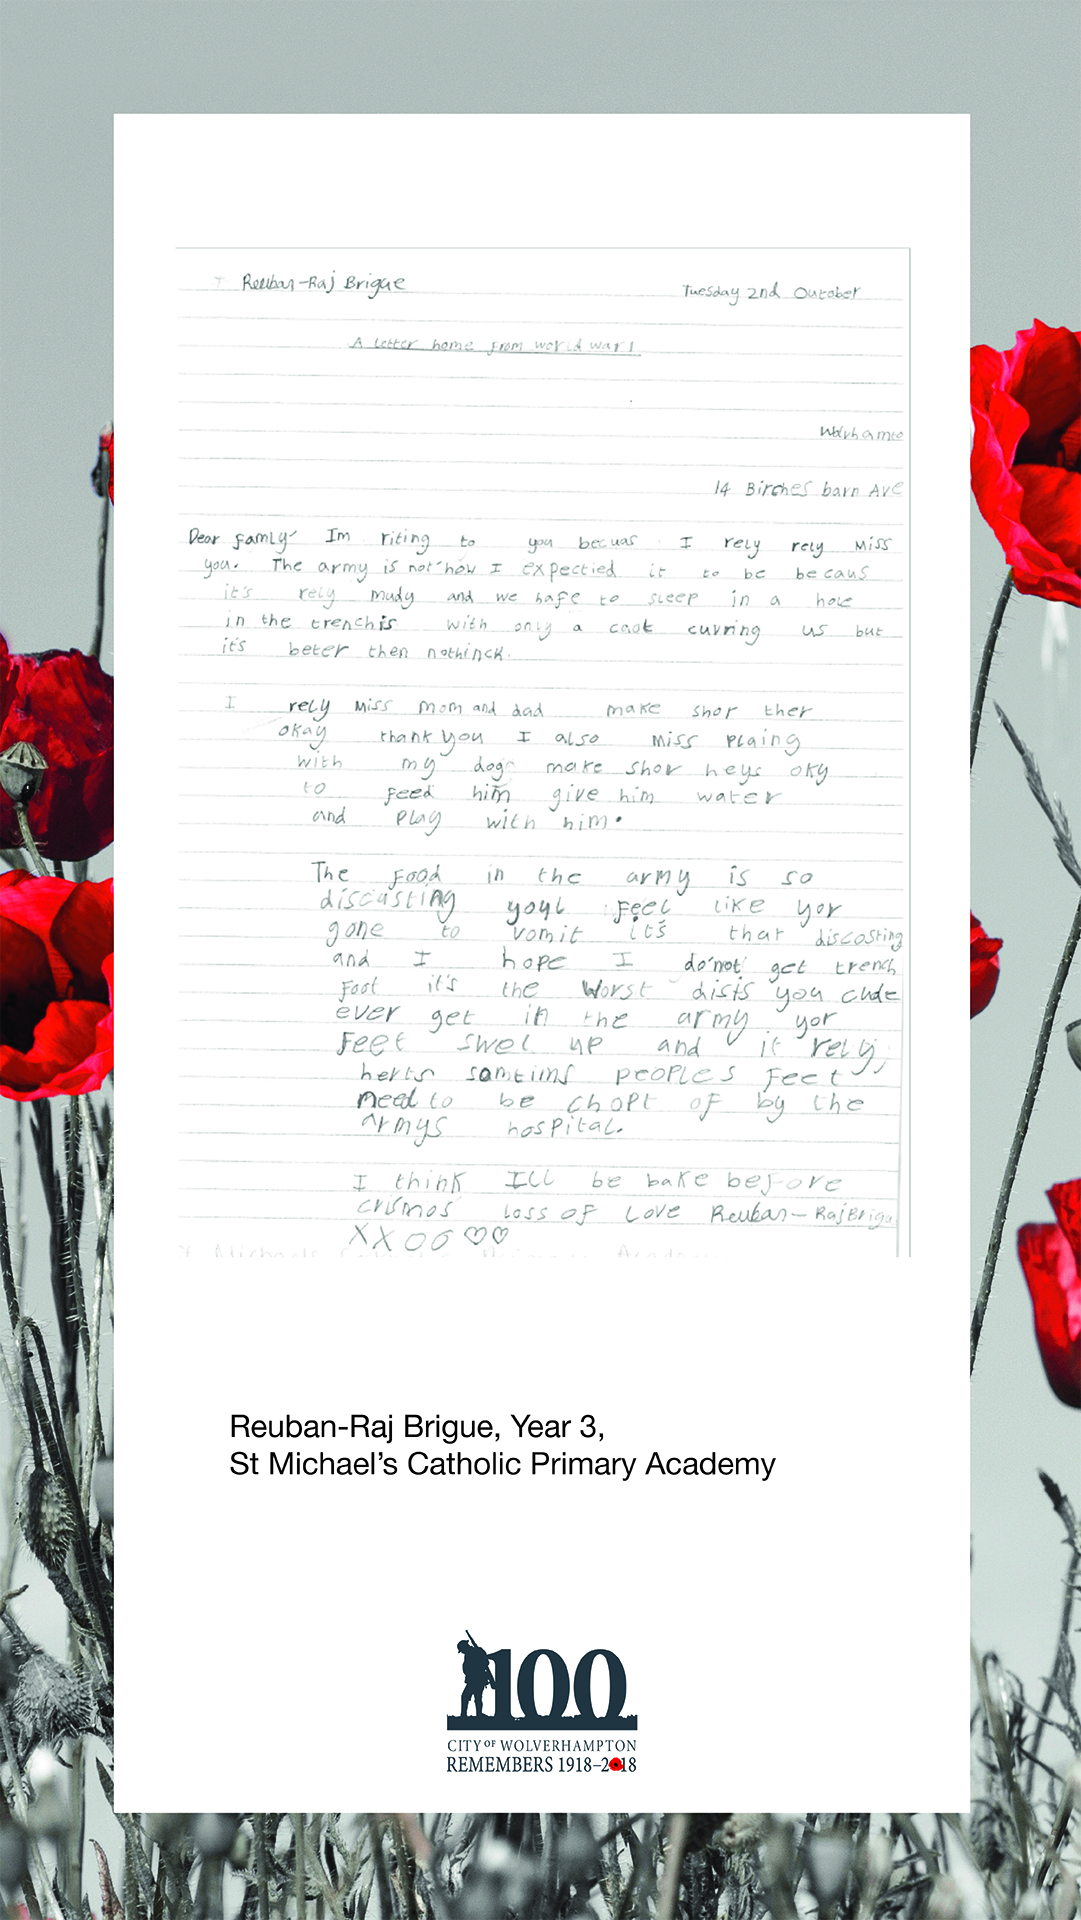 Reuban-Raj Brigue
Tuesday 2nd Outober
A letter home from world war 1
14 Birches barn Ave
Dear famly Im riting to you becuas I rely rely miss
you. The army is not how I expectied it to be becaus
it's rely mudy and we hafe to sleep in a hole
in the trenchis with only a coat curring us but
it's beter then nothinck.
I rely miss mom and dad make shor ther
okay thank you I also miss plaing
with my dog make shor heys oky
to feed him give him water
and play with him.
The food in the army is so
discasting youl feel like yor
gone to vomit it's that discosting
and I hope I do'not get trench
foot it's the worst disis you cude
ever get in the army yor
feet swel up and it rely
herts somtims peoples feet
need to be chopt of by the
armys hospital.
I think Ill be bake before
crismos loss of love Reuban-Raj Brigu
XXOO♡♡
Reuban-Raj Brigue, Year 3,
St Michael's Catholic Primary Academy
100
CITY OF WOLVERHAMPTON
REMEMBERS 1918-2018